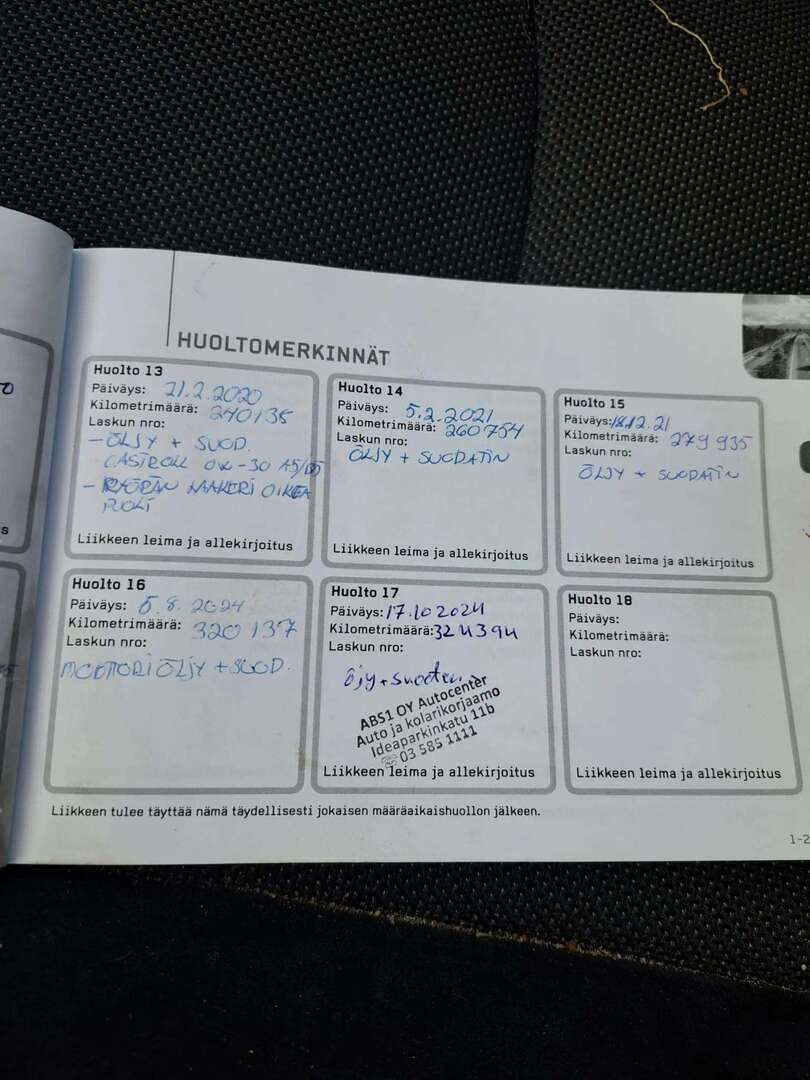 HUOLTOMERKINNÄT
Huolto 13
Päiväys: 21.2.2020
Kilometrimäärä: 240135
Laskun nro:
- ÖLJY + SUOD.
CASTROL 0W-30 A5/B5
- PYÖRÄN LAAKERI OIKEA
PUOLI
Liikkeen leima ja allekirjoitus
Huolto 14
Päiväys: 5.2.2021
Kilometrimäärä: 260754
Laskun nro:
ÖLJY + SUODATIN
Liikkeen leima ja allekirjoitus
Huolto 15
Päiväys: 18.12.21
Kilometrimäärä: 279 935
Laskun nro:
ÖLJY + SUODATIN
Liikkeen leima ja allekirjoitus
Huolto 16
Päiväys: 5.8.2024
Kilometrimäärä: 320 137
Laskun nro:
MOOTTORIÖLJY + SUOD.
Huolto 17
Päiväys: 17.10.2024
Kilometrimäärä: 324394
Laskun nro:
ABS1 OY Autocenter
Auto ja kolarikorjaamo
Ideaparkinkatu 11b
☏ 03 585 1111
Liikkeen leima ja allekirjoitus
Huolto 18
Päiväys:
Kilometrimäärä:
Laskun nro:
Liikkeen leima ja allekirjoitus
Liikkeen tulee täyttää nämä täydellisesti jokaisen määräaikaishuollon jälkeen.
1-2